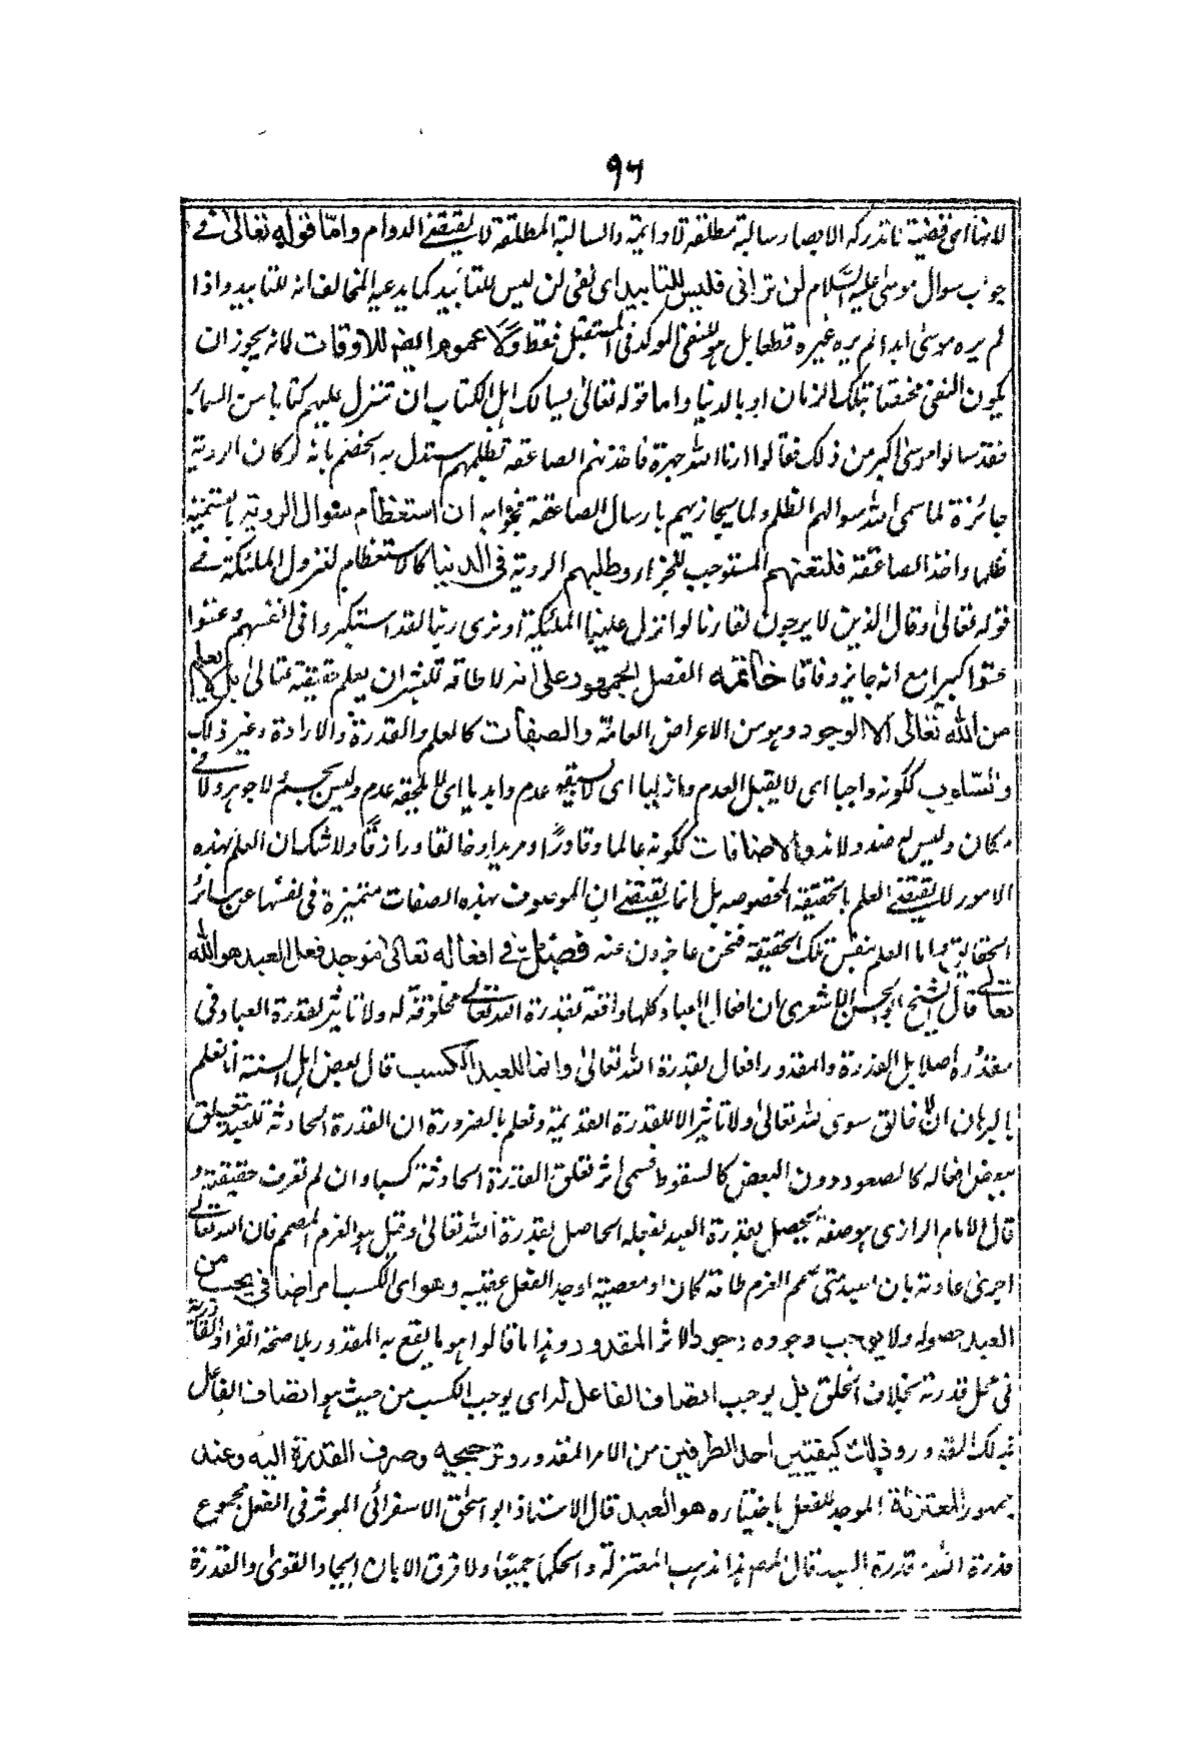 ٩٦
لانها اى قضية لا تدركه الابصار سالبة مطلقة لا دائمة والسالبة المطلقة لا يقتضى الدوام واما قوله تعالى فى
جواب سوال موسى عليه السلام لن ترانى فليس للتابيد اى نفى لن ليس للتابيد كما يدعيه المخالف انه للتابيد واذا
لم يره موسى ابدا لم يره غيره قطعا بل هو للنفى الموكد فى المستقبل فقط ولا عموم ايضا للاوقات لانه يجوز ان
يكون النفى مختصا بتلك الزمان او بالدنيا واما قوله تعالى يسالك اهل الكتاب ان تنزل عليهم كتابا من السماء
فقد سالوا موسى اكبر من ذلك فقالوا ارنا الله جهرة فاخذتهم الصاعقة بظلمهم استدل به الخصم بانه لو كان الروية
جائزة لما سمى الله سوالهم الظلم ولما يجازيهم بارسال الصاعقة فجوابه ان استعظام سوال الروية بتسمية
ظلما واخذ الصاعقة فلتعنتهم المستوجب للجزاء وطلبهم الروية فى الدنيا كالاستعظام لنزول الملئكة فى
قوله تعالى وقال الذين لا يرجون لقاءنا لولا انزل علينا الملئكة او نرى ربنا لقد استكبروا فى انفسهم وعتوا
عتوا كبيرا مع انه جايز وفاقا خاتمه الفصل الجمهور على انه لا طاقة للبشر ان يعلم حقيقة تعالى بل لا يعلم
من الله تعالى الا الوجود وهو من الاعراض العامة والصفات كالعلم والقدرة والارادة وغير ذلك
والسلوب ككونه واجبا اى لا يقبل العدم وازليا اى لا يسبقه عدم وابديا اى لا يلحقه عدم وليس بجسم ولا جوهر ولا فى
مكان وليس له ضد ولا ند والاضافات ككونه عالما وقادرا ومريدا وخالقا ورازقا ولا شك ان العلم بهذه
الامور لا يقتضى العلم بالحقيقة المخصوصة بل انما يقتضى ان الموصوف بهذه الصفات متميزة فى نفسها عن سائر
الحقايق واما العلم بنفس تلك الحقيقة فنحن عاجزون عنه فصل فى افعاله تعالى موجد فعل العبد هو الله
تعالى قال الشيخ ابو الحسن الاشعرى ان افعال العباد كلها واقعة بقدرة الله تعالى مخلوقة له ولا تاثير لقدرة العباد فى
مقدوره اصلا بل القدرة والمقدور افعال بقدرة الله تعالى وانما للعبد الكسب قال بعض اهل السنة انا نعلم
بالبرهان ان لا خالق سوى الله تعالى ولا تاثير الا للقدرة القديمة ونعلم بالضرورة ان القدرة الحادثة للعبد تتعلق
ببعض افعاله كالصعود دون البعض كالسقوط فسمى اثر تعلق القدرة الحادثة كسبا وان لم نعرف حقيقته و
قال الامام الرازى هو صفة يحصل بقدرة العبد لفعله الحاصل بقدرة الله تعالى وقيل هو العزم المصمم فان الله تعالى
اجرى عادته بان العبد متى صمم العزم طاعة كان او معصية اوجد الفعل عقيبه وهو اى الكسب امر اضافى يجب من
العبد حصوله ولا يوجب وجوده وجود الاثر المقدور وهذا ما قالوا هو ما يقع به المقدور بلا صحة انفراد القادر به
فى محل قدرته بخلاف الخلق بل يوجب اتصاف الفاعل له اى يوجب الكسب من حيث هو اتصاف الفاعل
بذلك المقدور وذلك كيفيتين احد الطرفين من الامر المقدور وترجيحه وصرف القدرة اليه وعند
جمهور المعتزلة الموجد للفعل باختياره هو العبد قال الاستاذ ابو اسحق الاسفرائى الموثر فى الفعل مجموع
قدرة الله و قدرة العبد قال المص هذا مذهب المعتزلة والحكماء جميعا ولا فرق الا بان ايجاد القوى والقدرة